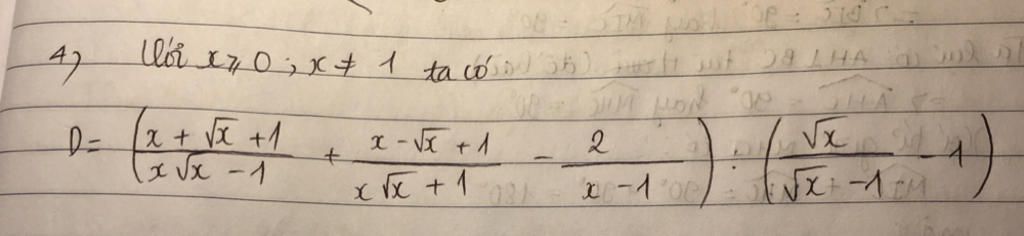 4) Với x ≥ 0 ; x ≠ 1 ta có
D = ( (x + √x + 1)/(x√x − 1) + (x − √x + 1)/(x√x + 1) − 2/(x − 1) ) : ( √x/(√x − 1) − 1 )